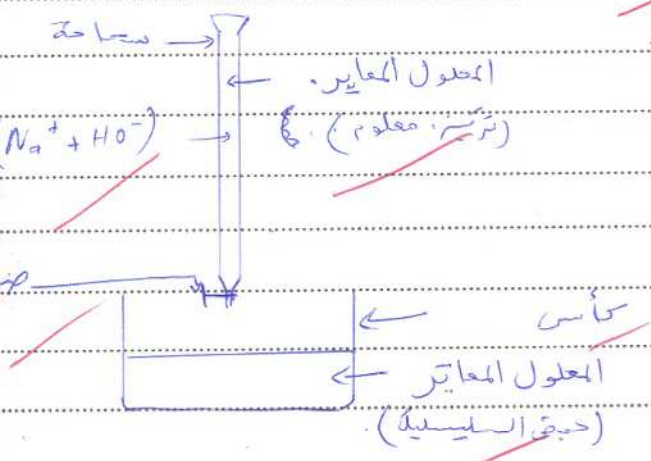 سحاحة
المحلول المعاير.
(تركيزه معلوم).
(Na⁺ + HO⁻)
كأس
المحلول المعاير
(حمض السليسيليك).